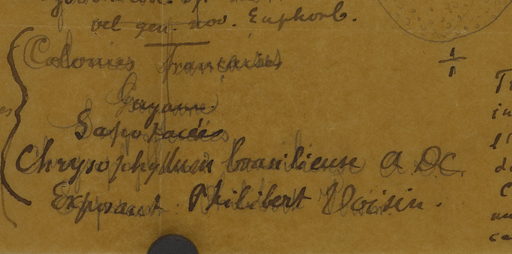 vel gen. nov. Euphorb.
Colonies Françaises
1/1
Guyane
Sapotacées
Chrysophyllum brasiliense A DC.
Exposant Philibert Voisin.